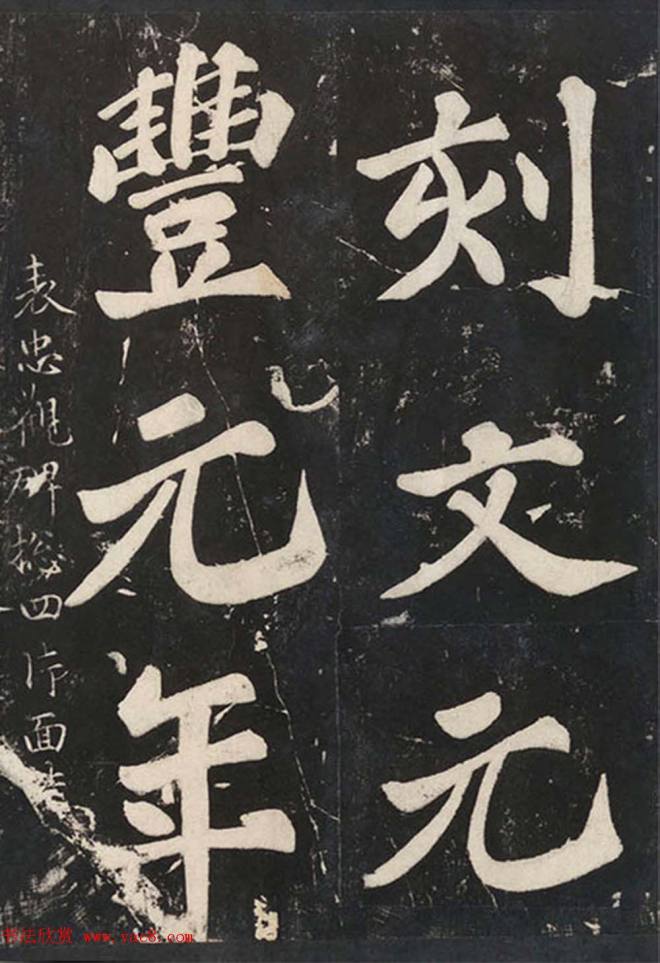 刻文元
豐元年
表忠觀碑
四片面
书法欣赏 www.yac8.com